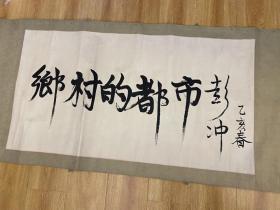 鄉村的都市
彭冲
乙亥春